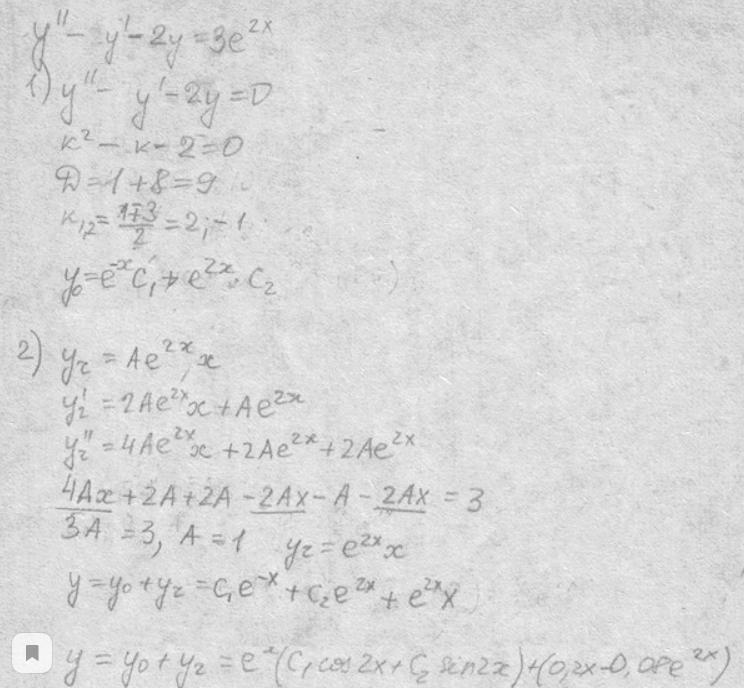 y'' - y' - 2y = 3e^{2x}
1) y'' - y' - 2y = 0
k² - k - 2 = 0
D = 1 + 8 = 9
k_{1,2} = \frac{1∓3}{2} = 2; -1
y_0 = e^{-x} C_1 + e^{2x} · C_2
2) y_r = Ae^{2x} x
y_r' = 2Ae^{2x} x + Ae^{2x}
y_r'' = 4Ae^{2x} x + 2Ae^{2x} + 2Ae^{2x}
4Ax + 2A + 2A - 2Ax - A - 2Ax = 3
3A = 3, A = 1 y_r = e^{2x} x
y = y_0 + y_r = C_1 e^{-x} + C_2 e^{2x} + e^{2x} x
y = y_0 + y_r = e^x (C_1 cos2x + C_2 sin2x) + (0,2x - 0,08e^{2x})